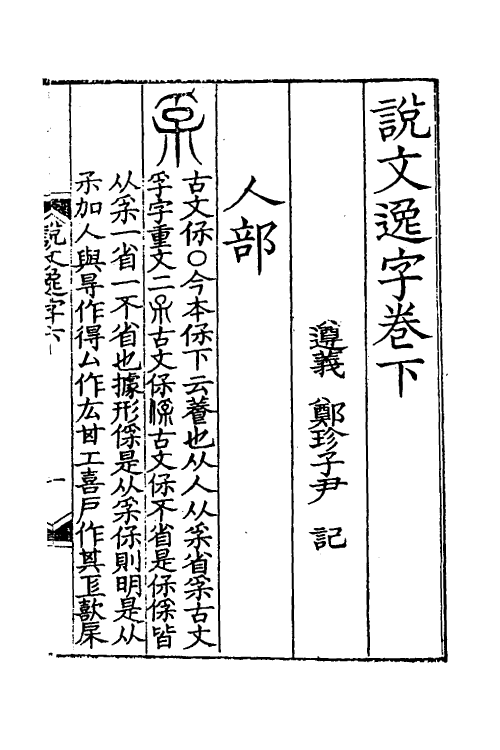 說文逸字卷下
遵義 鄭珍子尹 記
人部
𤓽
古文保〇今本保下云養也从人从𤓽省𤓽古文
孚字重文二𤓽古文保𠊻古文保不省是保𠊻皆
从𤓽一省一不省也據形𠊻是从𤓽保則明是从
呆加人與㝵作得厶作厷甘工喜戶作其𠥓歖㞒
說文逸字下
一